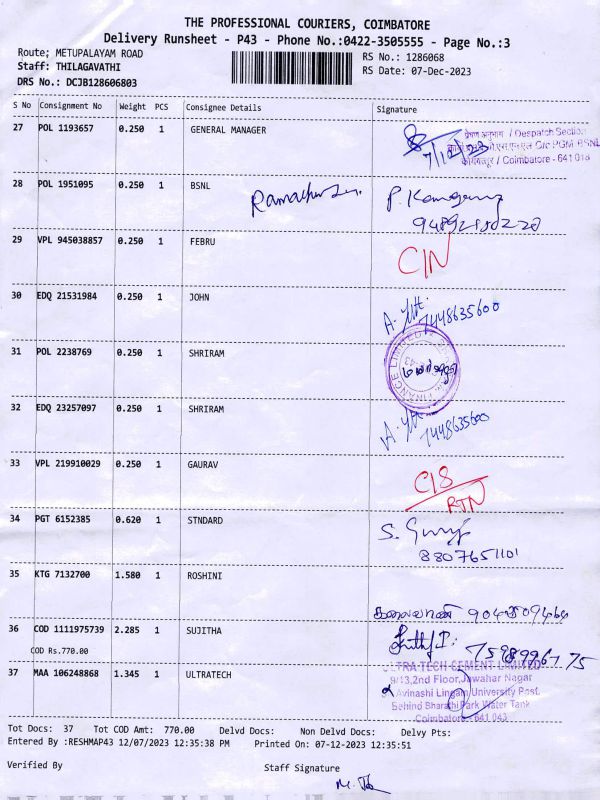 THE PROFESSIONAL COURIERS, COIMBATORE
Delivery Runsheet - P43 - Phone No.:0422-3505555 - Page No.:3
Route; METUPALAYAM ROAD
Staff: THILAGAVATHI
DRS No.: DCJB128606803
RS No.: 1286068
RS Date: 07-Dec-2023
S No Consignment No Weight PCS Consignee Details Signature
27 POL 1193657 0.250 1 GENERAL MANAGER
7/12/23
प्रेषण अनुभाग / Despatch Section
O/o PGM BSNL
कोयंबत्तूर / Coimbatore - 641 018
28 POL 1951095 0.250 1 BSNL
29 VPL 945038857 0.250 1 FEBRU CIN
30 EDQ 21531984 0.250 1 JOHN 7448635600
31 POL 2238769 0.250 1 SHRIRAM
FINANCE LIMITED
32 EDQ 23257097 0.250 1 SHRIRAM 7448635600
33 VPL 219910029 0.250 1 GAURAV C/S
RTN
34 PGT 6152385 0.620 1 STNDARD S.
8807651101
35 KTG 7132700 1.580 1 ROSHINI
36 COD 1111975739 2.285 1 SUJITHA
COD Rs.770.00
37 MAA 106248868 1.345 1 ULTRATECH
ULTRA TECH CEMENT LIMITED
9/13,2nd Floor,Jawahar Nagar
Avinashi Lingam University Post,
Behind Bharathi Park Water Tank
Coimbatore - 641 043
Tot Docs: 37 Tot COD Amt: 770.00 Delvd Docs: Non Delvd Docs: Delvy Pts:
Entered By :RESHMAP43 12/07/2023 12:35:38 PM Printed On: 07-12-2023 12:35:51
Verified By Staff Signature